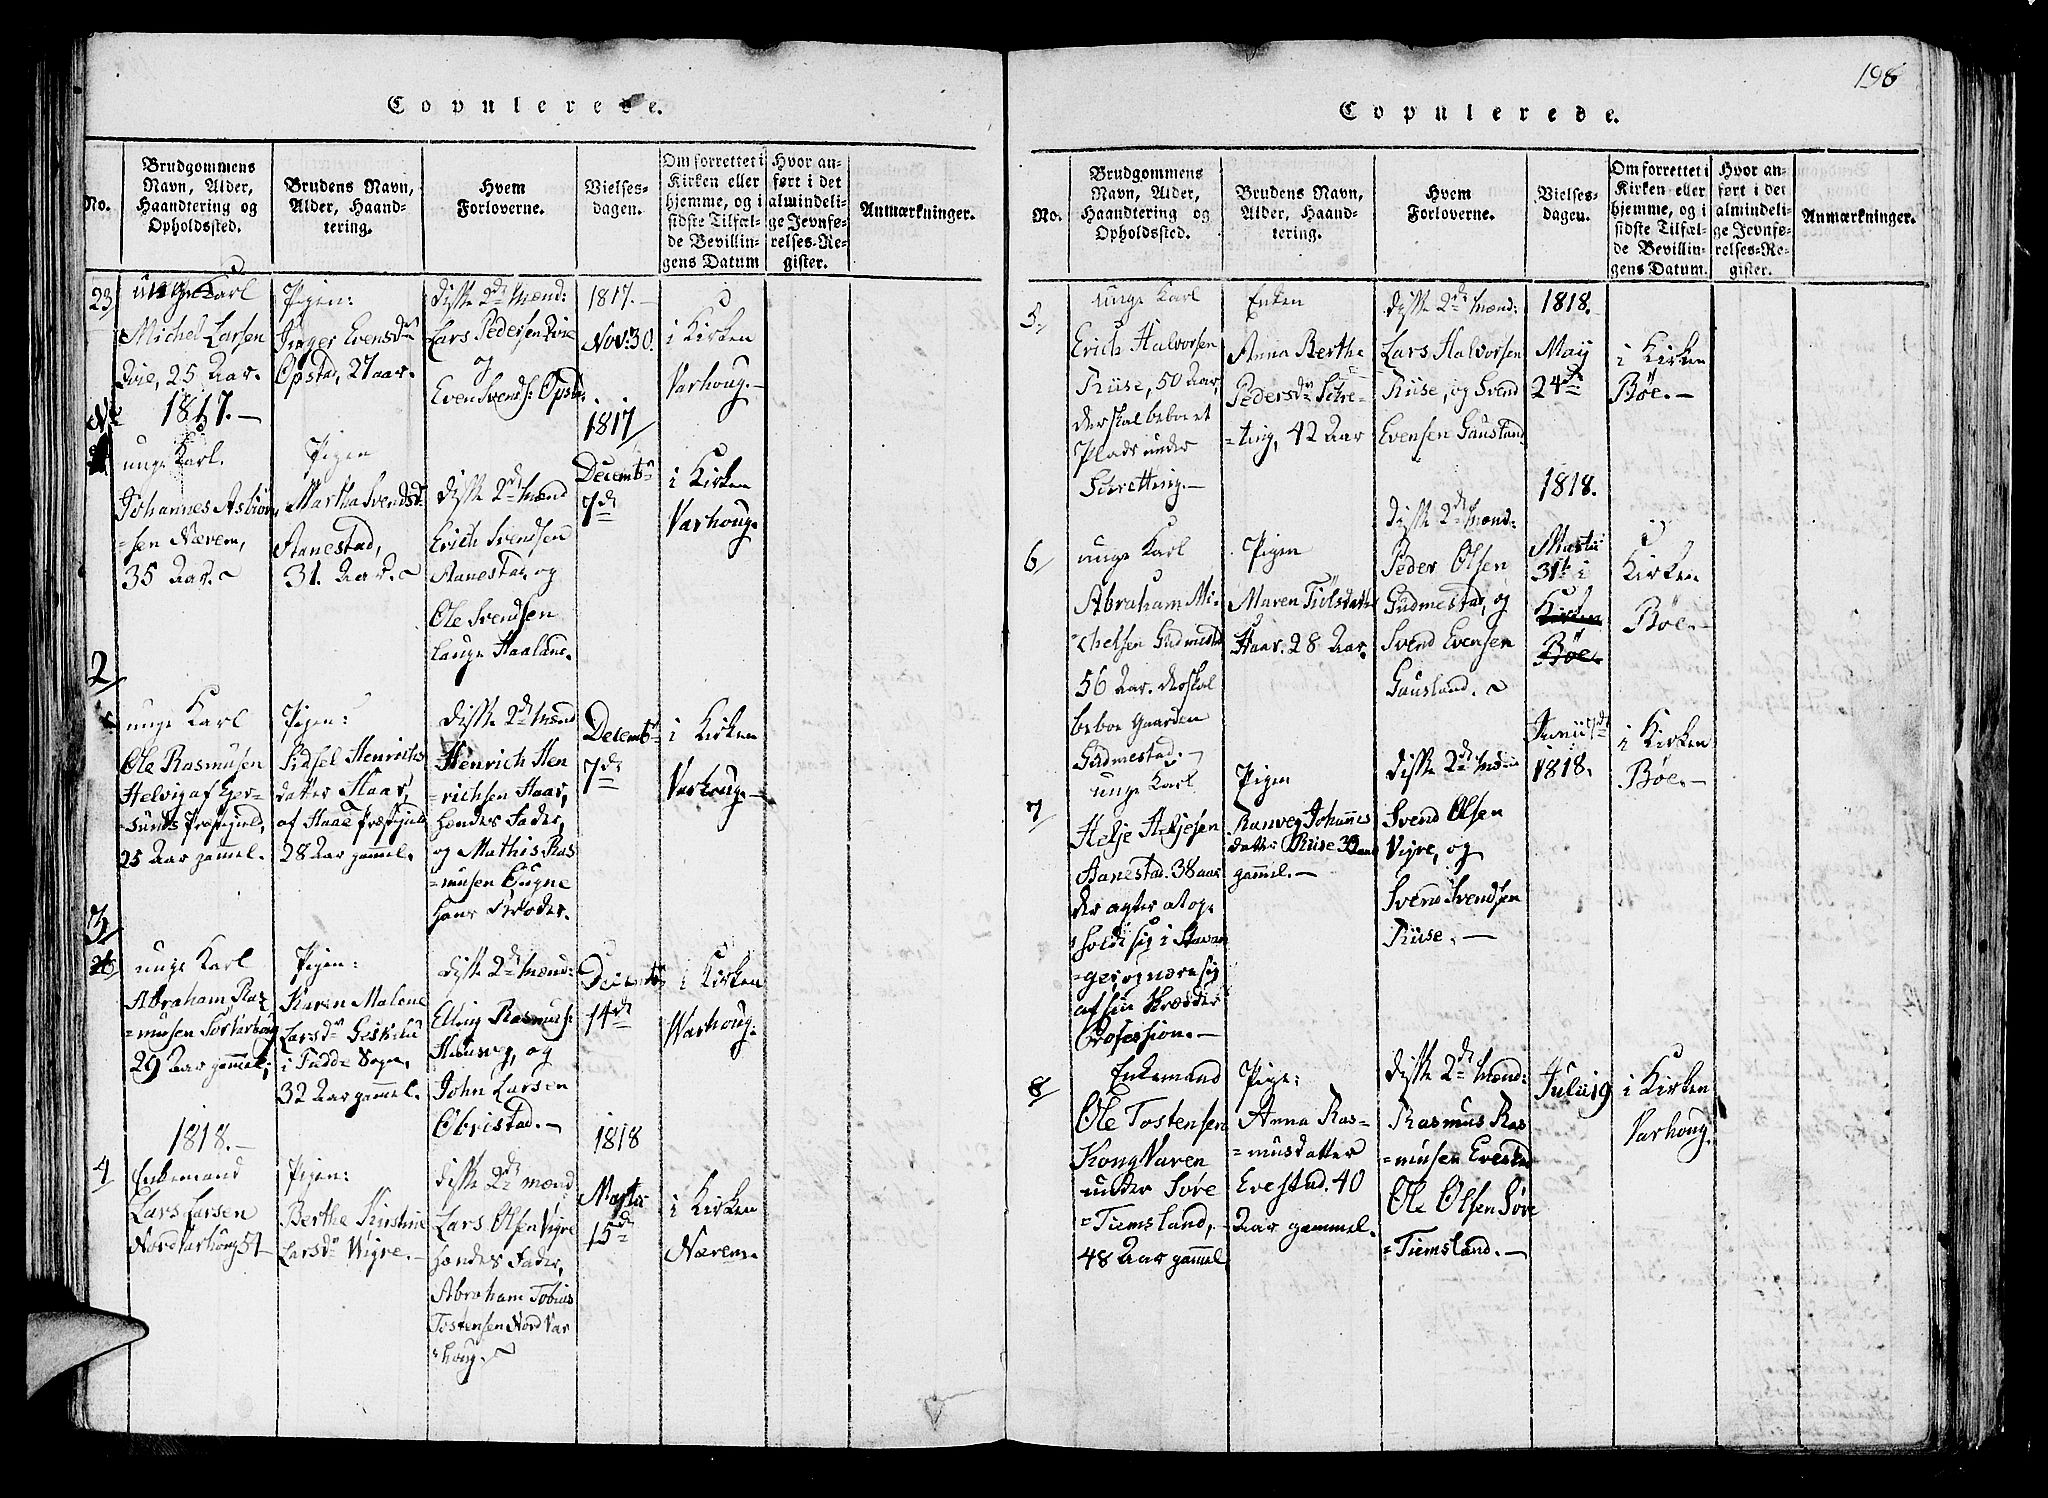 198
Copulerede.
No.
Brudgommens Navn, Alder, Haandtering og Opholdssted.
Brudens Navn, Alder, Haandtering.
Hvem Forloverne.
Vielsesdagen.
Om forrettet i Kirken eller hjemme, og i sidste Tilfælde Bevillingens Datum
Hvor anført i det almindelige Jevnførelses-Register.
Anmærkninger.
23
unge Karl
Michel Larsen
25 Aar.
Pigen:
Inger Evensdr
Opstad, 27 aar.
diske 2de Mænd:
Lars Pedersen
og
Even Svends: Opst:
1817.
Nov: 30.
i Kirken
Varhoug.
1817.
unge Karl.
Johannes Asbiørn
=sen Nærem,
35 Aar.
Pigen
Martha Svendsd
Aanestad,
31. Aar.
diske 2de Mænd
Erich Svendsen
Aanestad, og
Ole Svendsen
Lauge Haaland.
1817
Decembr
7de
i Kirken
Varhoug.
2
unge Karl
Ole Rasmusen
Helvig af Eger=
sunds Præstegield,
25 Aar gammel.
Pigen:
Sidsel Henrichs
datter Haar,
af Haae Præstgield
28 Aar gammel.
diske 2de Mænd
Henrich Hen
=richsen Haar,
hendes Fader,
og Mathis Ras
=musen
hans Broder.
Decembr
7de
i Kirken
Varhoug.
3
unge Karl
Abraham Ras
=musen Sør Varhoug
29 Aar gammel,
Pigen:
Karen Malene
Larsdr
i Sogn,
32 Aar gammel.
diske 2de Mænd:
Elling Rasmus:
og
John Larsen
Obrestad.
Decembr
14de
i Kirken
Warhoug.
1818.
4
Enkemand
Lars Larsen
Nord Varhoug 51
Pigen:
Berthe Kirstine
Larsdr Wigre.
diske 2de Mænd
Lars Olsen Vigre
hendes Fader,
Abraham Tobias
Tostensen Nord Var
=houg.
1818
15de
i Kirken
Nærem.
Copulerede.
No.
Brudgommens Navn, Alder, Haandtering og Opholdssted.
Brudens Navn, Alder, Haandtering.
Hvem Forloverne.
Vielsesdagen.
Om forrettet i Kirken eller hjemme, og i sidste Tilfælde Bevillingens Datum.
Hvor anført i det almindelige Jevnførelses-Register.
Anmærkninger.
5
unge Karl
Erich Halvorsen
Riise, 50 Aar,
der skal beboe et
Plads under
Schretting.
Enken
Anna Berthe
Pedersdr Schre=
=ting, 42 Aar
diske 2de Mænd:
Lars Halvorsen
Riise, og Svend
Evensen Gausland
1818.
May
24de
i Kirken
Bøe.
6
unge Karl
Abraham Mi=
=chelsen Gudmestad
56 Aar. der skal
beboe Gaarden
Gudmestad.
Pigen
Maren
Haar. 28 Aar.
diske 2de Mænd:
Peder Olsen
Gudmestad, og
Svend Evensen
Gausland.
1818.
31te i
Kirken
Bøe.
i
Kirken
Bøe.
7
unge Karl
Helje Heljesen
Aanestad. 38 aar
der agter at op=
holde sig i Stavan
=ger, og nære sig
af sin Skrædder
Profession.
Pigen
Ranveg Johannes
datter Riise 33 aar
gammel.
diske 2de Mænd
Svend Olsen
Vigre, og
Svend Svendsen
Riise.
Junii 7de
1818.
i Kirken
Bøe.
8
Enkemand
Ole Tostensen
KongVaren
under Søre
=Tiemsland,
48 Aar gammel
Pige:
Anna Ras=
=musdatter
Evestad. 40
Aar gammel.
diske 2de Mænd:
Rasmus Ras
=musen Evestad
Ole Olsen Søre
=Tiemsland.
Julii 19
i Kirken
Varhoug.